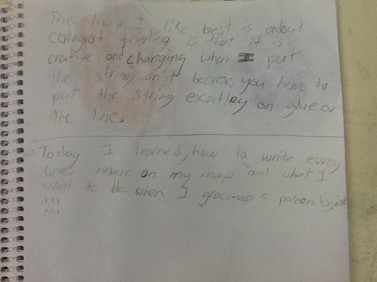 The thing I like best is about
collagraf printing is that it is
creative and changing when I put
the string on it because, you have to
put the string exatley on glue or
the line.
Today I learned, how to write every
ones name on my map and what I
want to be when I grow-up a paleontologist
!!!